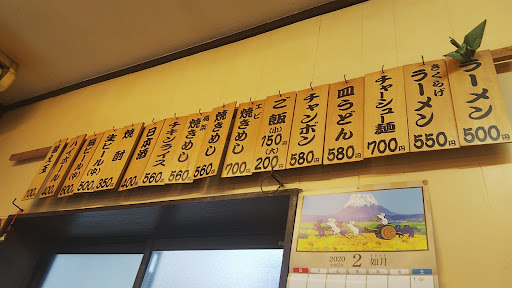 ラーメン
500円
きくらげ
ラーメン
550円
チャーシュー麺
700円
皿うどん
580円
チャンポン
580円
ご飯
(小)
150円
(大)
200円
エビ
焼きめし
700円
焼きめし
560円
高菜
焼きめし
560円
チキンライス
560円
日本酒
400円
焼酎
350円
生ビール(中)
500円
ビール(中)
ハイボール
400円
替え玉
2020
2
如月